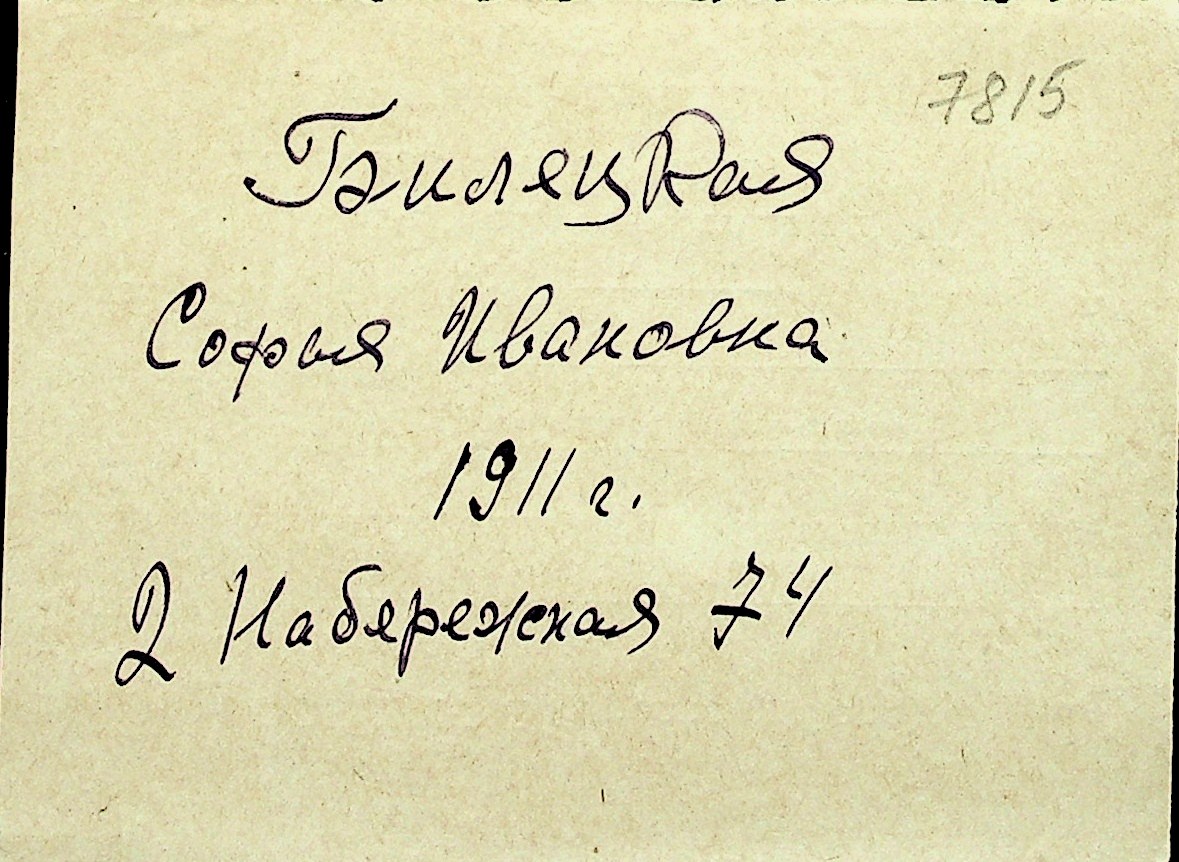 7815
Билецкая
Софья Ивановна
1911 г.
2 Набережная 74